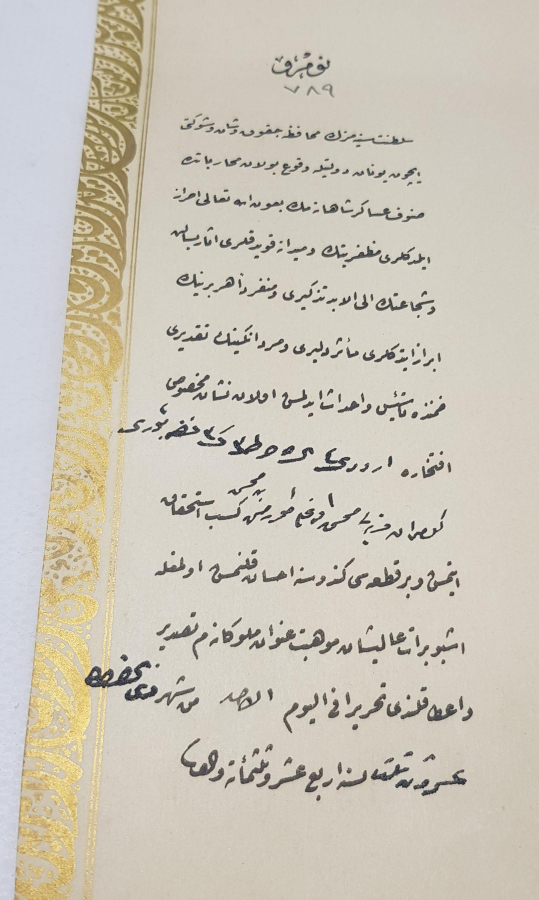 نومرو
٧٨٩
سلطنت سنیه مزك محافظهٔ حقوق وشان وشوکتی
ایچون یونان دولتیله وقوع بولان محارباتده
صنوف عساکر شاهانه مك بعون الله تعالی احراز
ایلدکلری مظفریتك ومیدانه قویدقلری آثار بسالت
وشجاعتك الی الابد تذکیری ومنفرداً هر برینك
ابراز ایتدکلری مآثر دلیری ومردانکینك تقدیری
ضمننده تأسیس واحداث ایدلمش اولان نشان مخصوص
افتخاره اردوی
اوغلی کسب استحقاق
ایتمش وبر قطعه سی کندوسنه احسان قلنمش اولمغله
اشبو برات عالیشان موهبت عنوان ملوکانه م تصدیر
واعطا قلندی تحریراً فی الیوم الاحد من شهر
لسنه اربع عشر وثلثمأئة والف